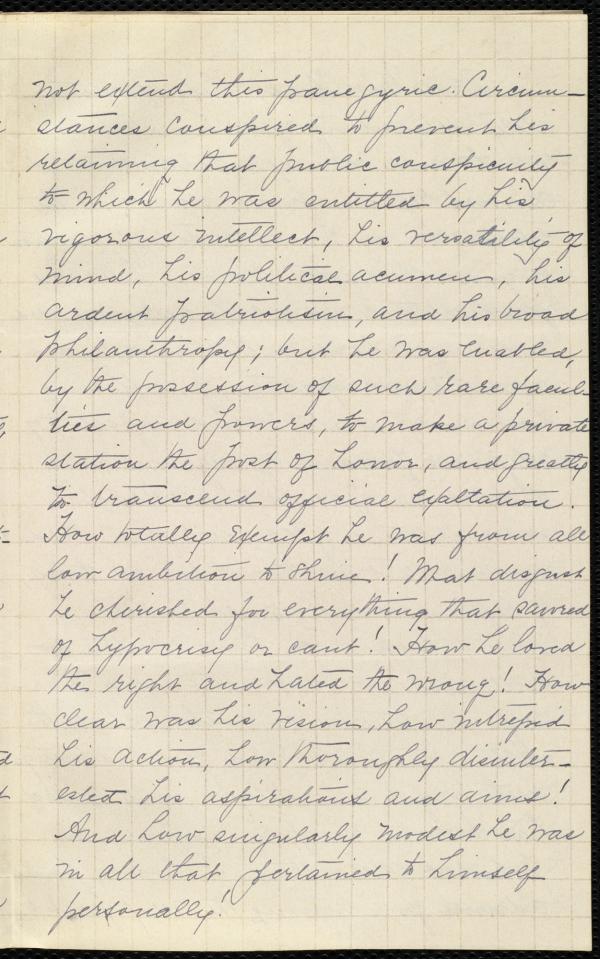 not extend this panegyric. Circum-
stances conspired to prevent his
retaining that public conspicuity
to which he was entitled by his
vigorous intellect, his versatility of
mind, his political acumen, his
ardent patriotism, and his broad
philanthropy; but he was enabled,
by the possession of such rare facul-
ties and powers, to make a private
station the post of honor, and greatly
to transcend official exaltation.
How totally exempt he was from all
low ambition to shine! What disgust
he cherished for everything that savored
of hypocrisy or cant! How he loved
the right and hated the wrong! How
clear was his vision, how intrepid
his action, how thoroughly disinter-
ested his aspirations and aims!
And how singularly modest he was
in all that pertained to himself
personally!